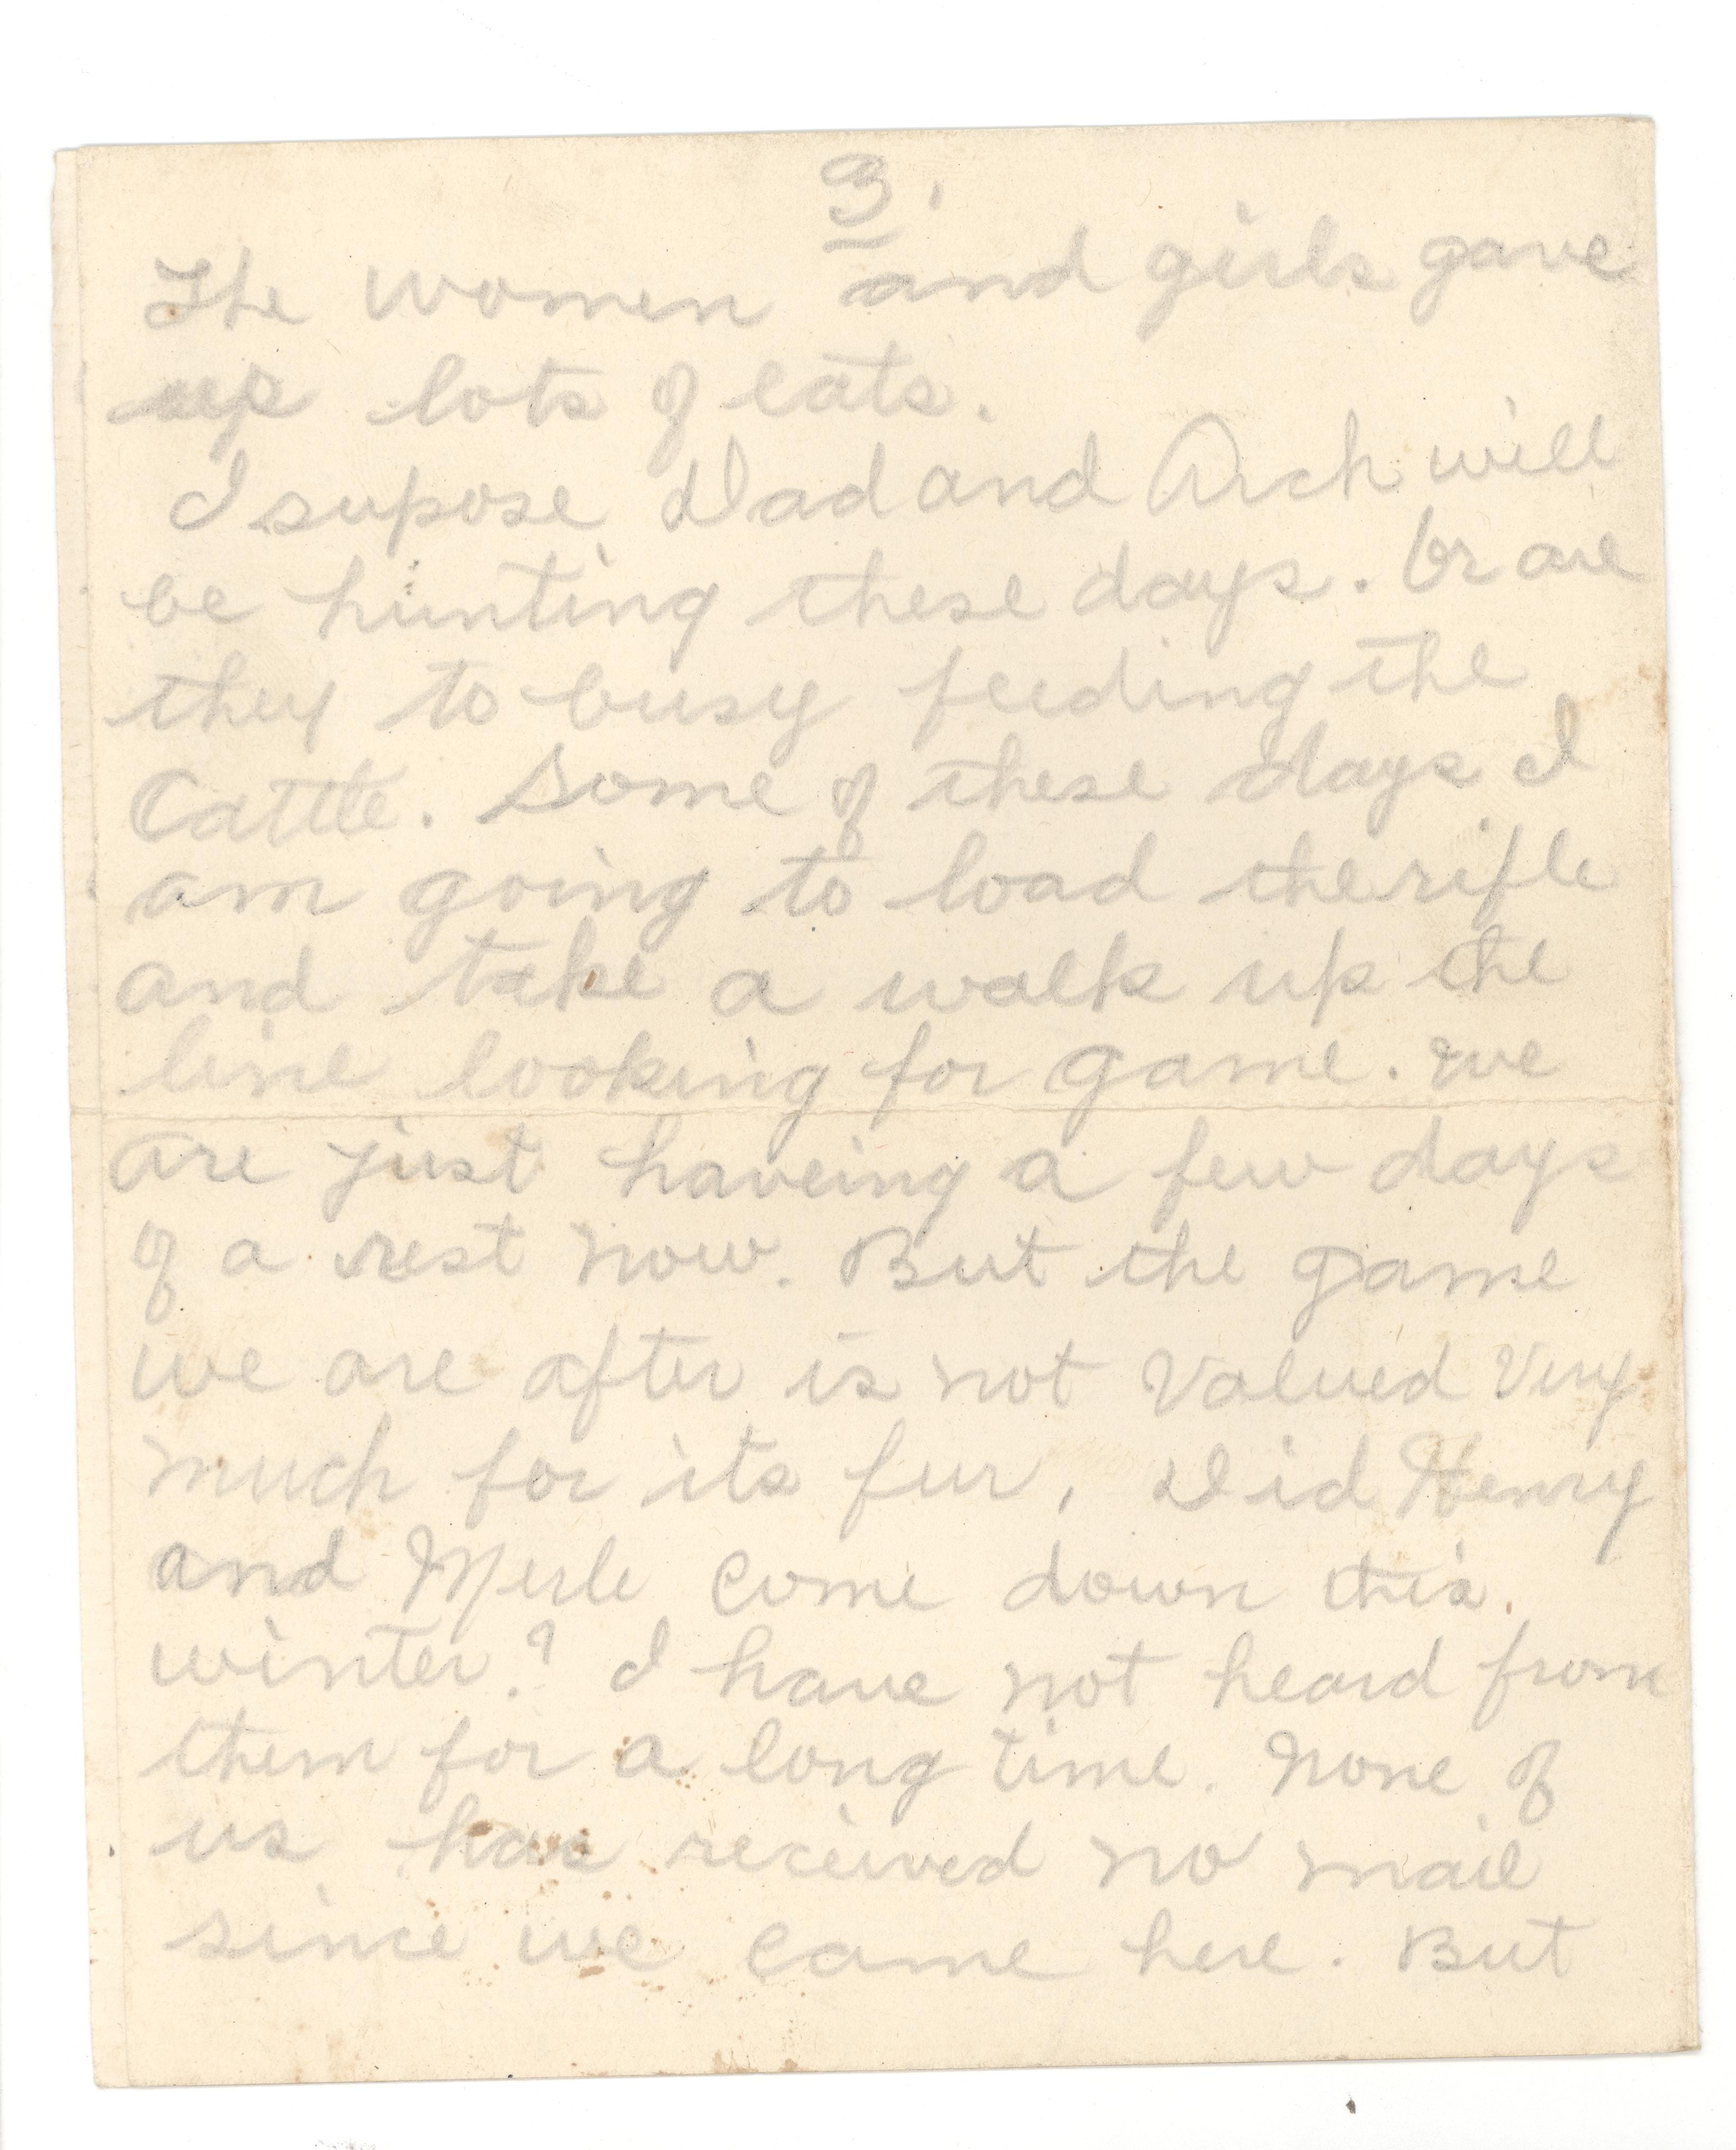 3.
The women and girls gave
us lots of eats.
I supose Dad and Arch will
be hunting these days. Or are
they to busy feeding the
Cattle. Some of these days I
am going to load the rifle
and take a walk up the
line looking for game. we
are just haveing a few days
of a rest now. But the game
we are after is not Valued Very
much for its fur, Did Henry
and Merle Come down this
winter? I have not heard from
them for a long time. None of
us has received no mail
since we came here. But